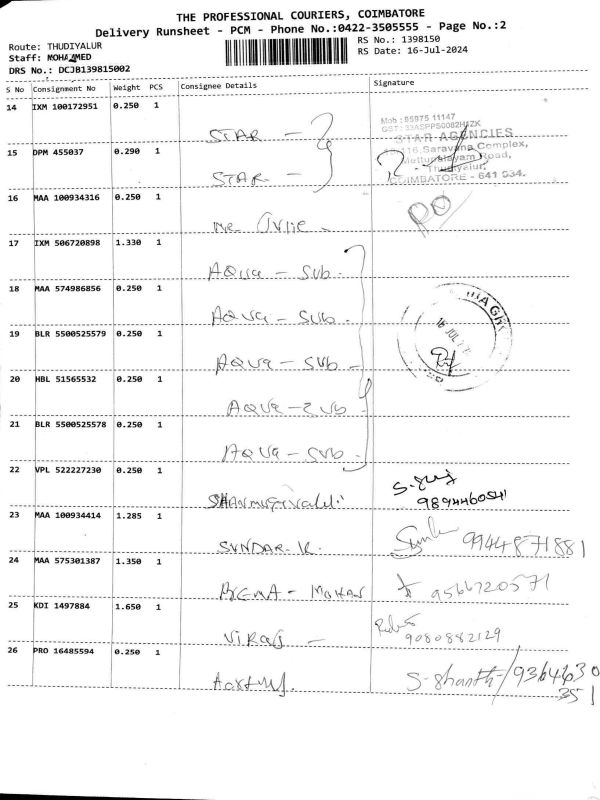 THE PROFESSIONAL COURIERS, COIMBATORE
Delivery Runsheet - PCM - Phone No.:0422-3505555 - Page No.:2
Route: THUDIYALUR
RS No.: 1398150
Staff: MOHAMMED
RS Date: 16-Jul-2024
DRS No.: DCJB139815002
S No Consignment No Weight PCS Consignee Details Signature
14 IXM 100172951 0.250 1
STAR -
Mob : 95975 11147
STAR AGENCIES
Saravana Complex,
Mettupalayam Road,
Thudiyalur,
COIMBATORE - 641 034.
15 DPM 455037 0.290 1
STAR -
16 MAA 100934316 0.250 1
17 IXM 506720898 1.330 1
AQUA - SUB.
18 MAA 574986856 0.250 1
AQUA - SUB.
19 BLR 5500525579 0.250 1
AQUA - SUB
20 HBL 51565532 0.250 1
AQUA - SUB
21 BLR 5500525578 0.250 1
AQUA - SUB
22 VPL 522227230 0.250 1
23 MAA 100934414 1.285 1
SUNDAR. K.
9944871881
24 MAA 575301387 1.350 1
PREMA - MOHAN
9566720571
25 KDI 1497884 1.650 1
VIRAJ -
9080882129
26 PRO 16485594 0.250 1
S-Shanthi / 9364630
351